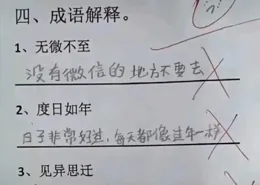 四、成语解释。
1、无微不至
没有微信的地方不要去
2、度日如年
日子非常好过，每天都像过年一样
3、见异思迁